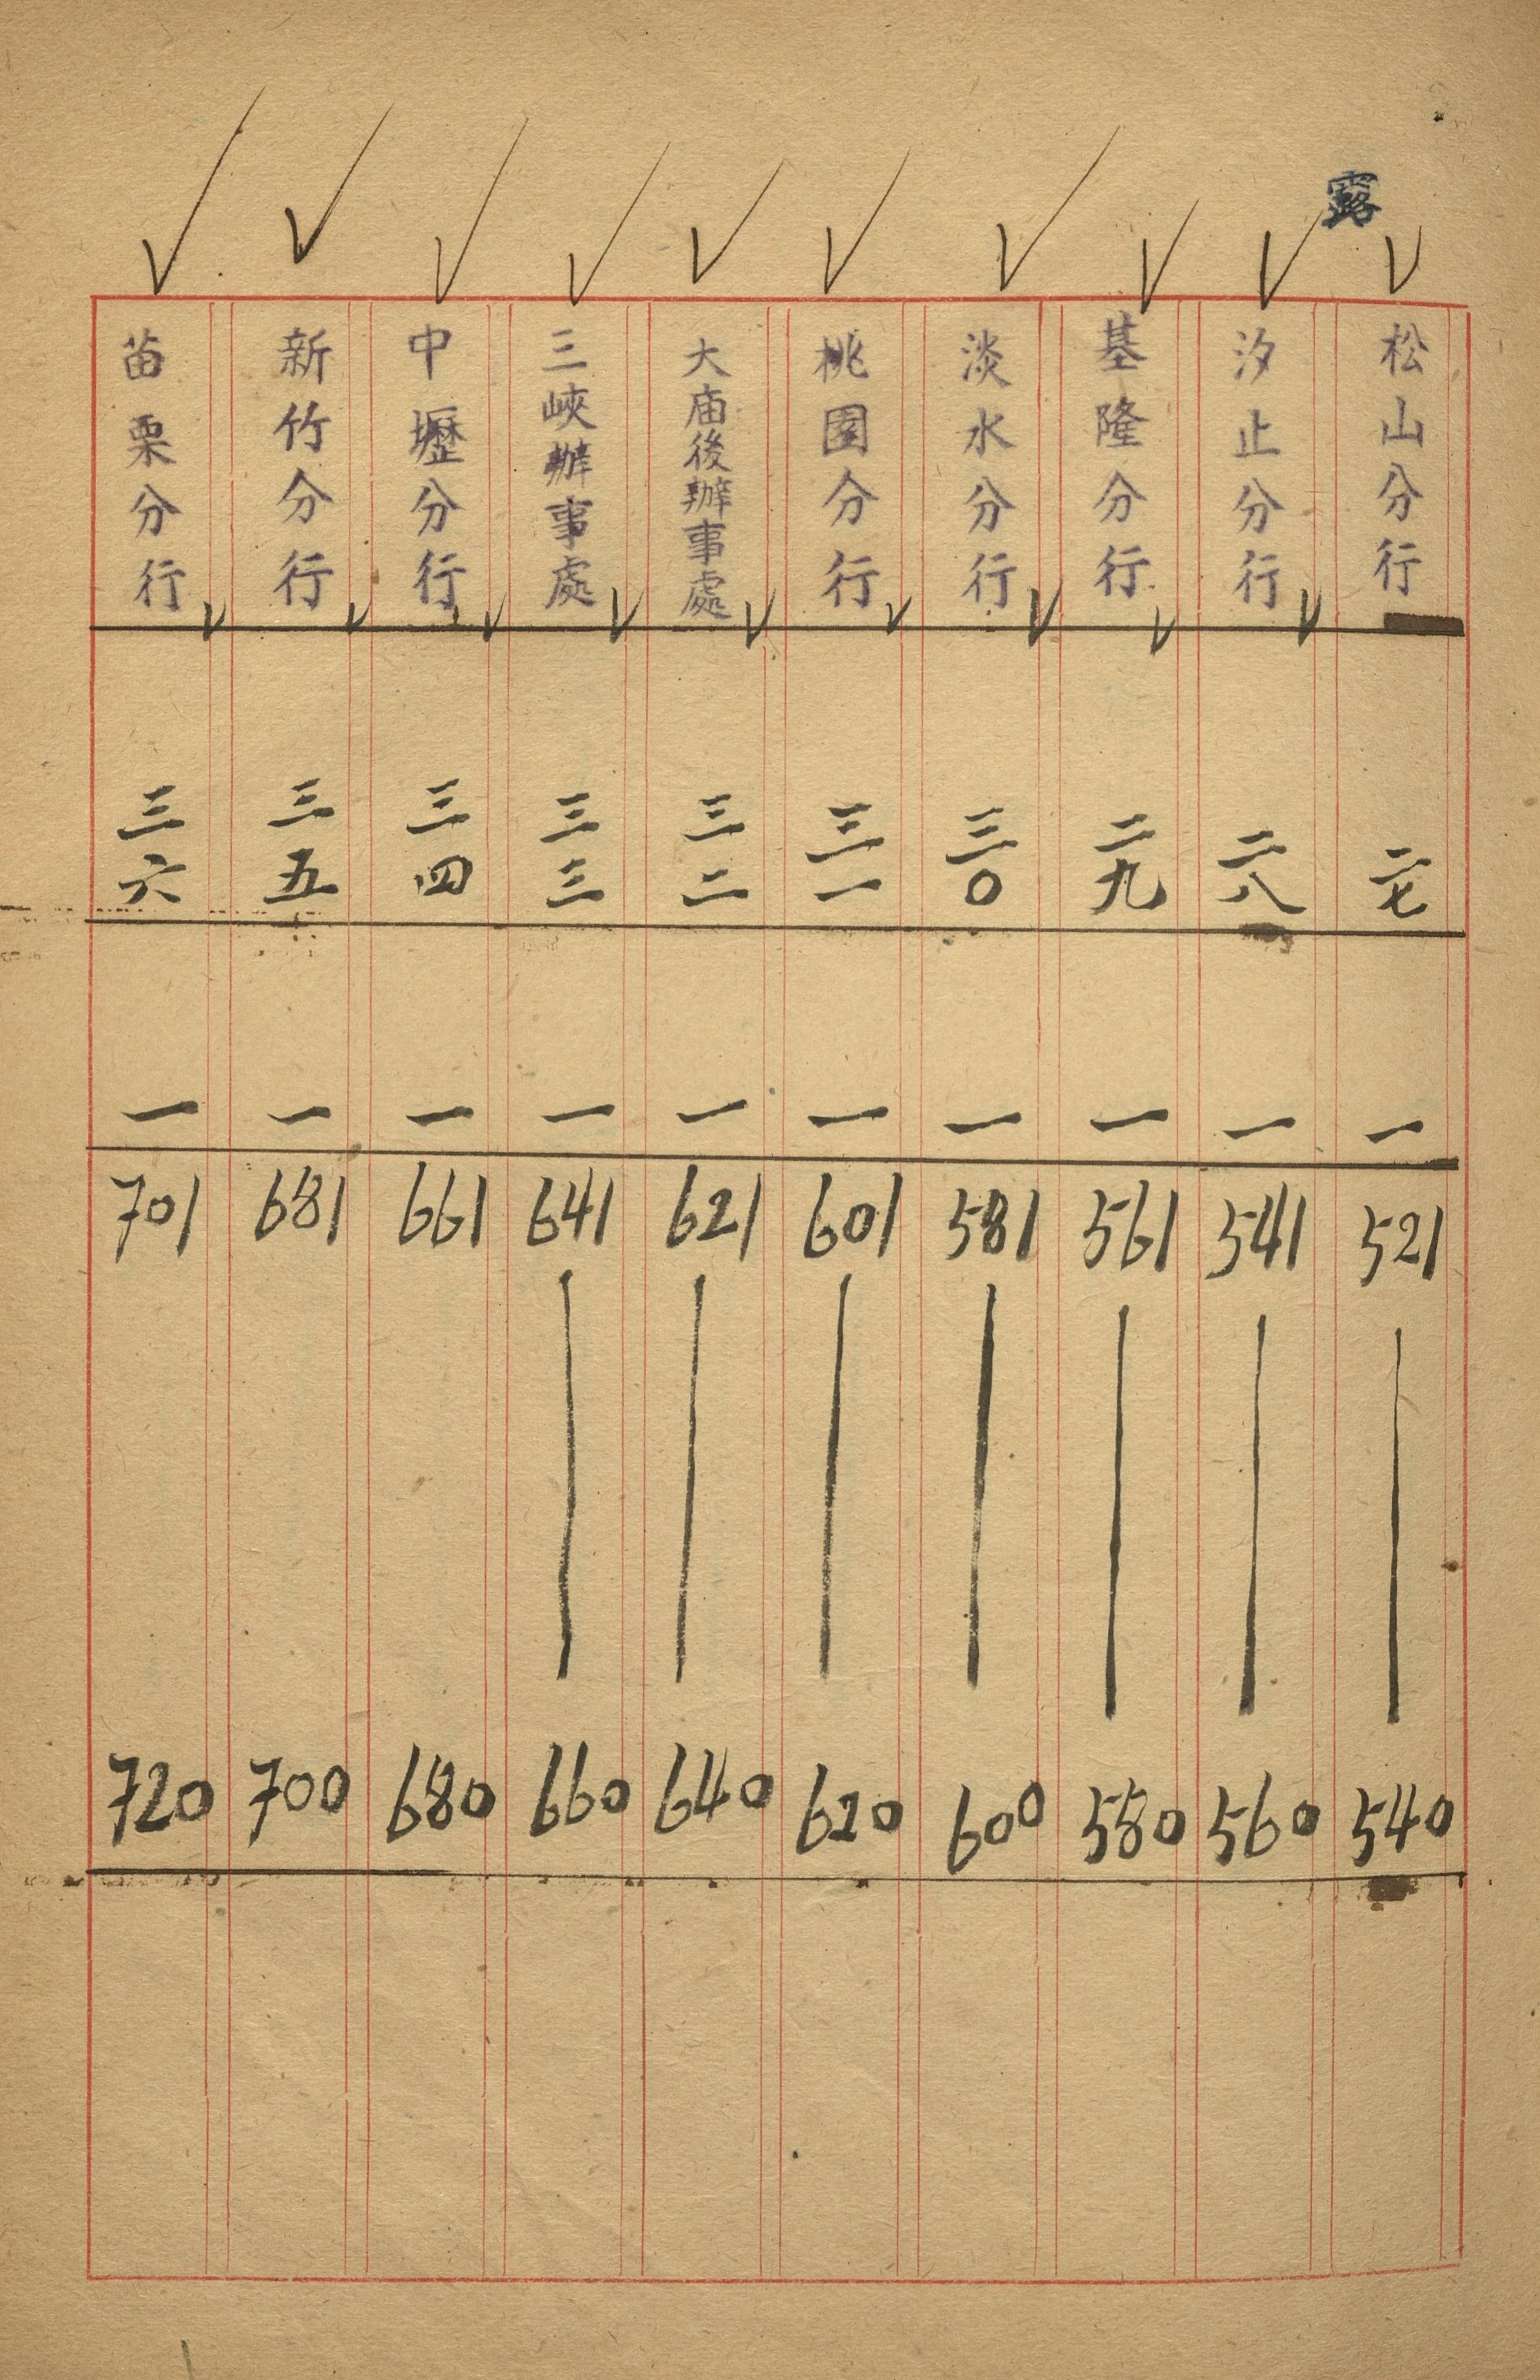 露
松山分行 二七 一 521 540
汐止分行 二八 一 541 560
基隆分行 二九 一 561 580
淡水分行 三〇 一 581 600
桃園分行 三一 一 601 620
大庙後辦事處 三二 一 621 640
三峽辦事處 三三 一 641 660
中壢分行 三四 一 661 680
新竹分行 三五 一 681 700
苗栗分行 三六 一 701 720